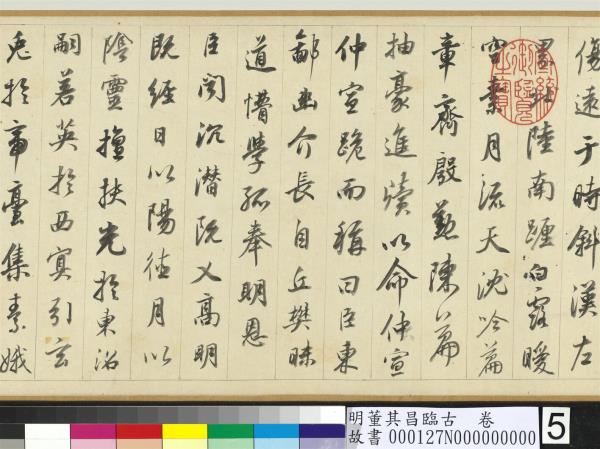 傷遠于時斜漢左
界北陸南躔白露曖
空素月流天沈吟齊
章殷勤陳篇
抽豪進牘以命仲宣
仲宣跪而稱曰臣東
鄙幽介長自丘樊昧
道懵學孤奉明恩
臣聞沉潛既乂高明
既經日以陽德月以
陰靈擅扶光於東沼
嗣若英於西冥引玄
兎於帝臺集素娥
嘉慶御覽之寶
明董其昌臨古 卷
故書000127N000000000
5